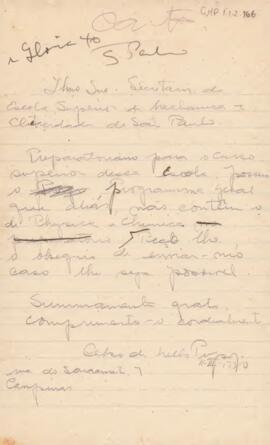 CMP 1.2.166
Carta
R Gloria 40
S Paulo
Illmo Snr. Secretario da
Escola Superior de Mechanica e
Electricidade de São Paulo.
Preparatoriano para o curso
superior dessa Escola, possuo
o programma geral
que aliás não contém o
de Physica e Chimica
Peço lhe
o obsequio de enviar-mo
caso lhe seja possivel.
Summamente grato
comprimento-o cordialmente
Celso de Mello
rua do Sacramento, 7
Campinas